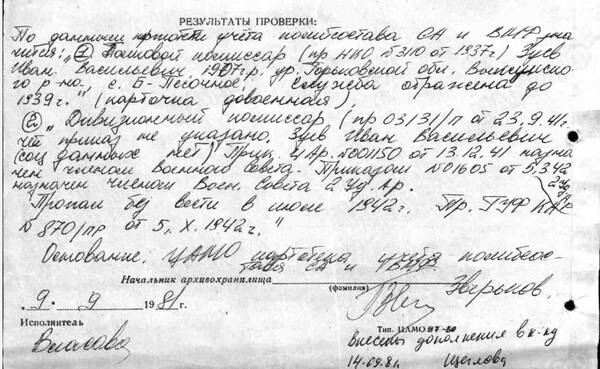 РЕЗУЛЬТАТЫ ПРОВЕРКИ:
По данным картотеки учёта политсостава СА и ВМФ зна-
чится: "① Полковой комиссар (пр НКО №3110 от 1937г) Зуев
Иван Васильевич, 1907г.р. ур. Горьковской обл. Выксунско-
го р-на. с. Б-Песочное. Служба отражена до
1939г." (карточка довоенная).
② "Дивизионный комиссар (пр 03131/п от 23.9.41г.
чей приказ не указано. Зуев Иван Васильевич
(соц данных нет) Прик. 4Ар. №00150 от 13.12.41 назна
чен членом военного совета. Приказом №01605 от 5.3.42
назначен членом Воен. Совета 2 Уд. Ар.
"Пропал без вести в июле 1942г. Пр. ГУФ КА
№870/пр от 5. X. 1942г."
Основание: ЦАМО картотека учёта политсос-
тава СА и ВМФ.
Начальник архивохранилища
(фамилия)
Зверьков
"9" 9 1981г.
Исполнитель
Власова
Тип. ЦАМО 97-80
Внесены дополнения в к-ку
14.09.81 Щеглова